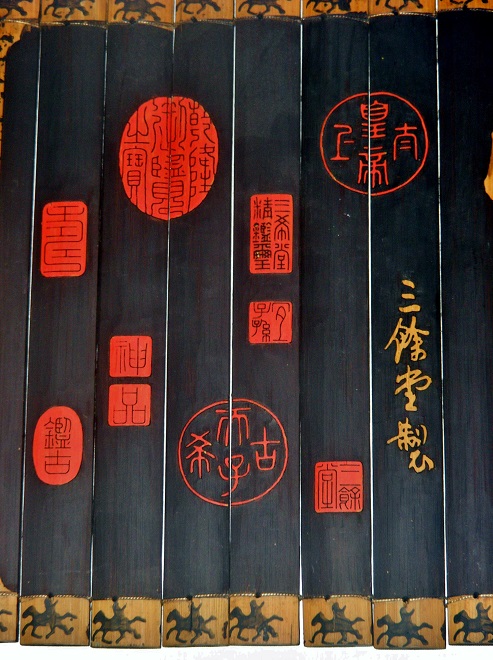 太上皇帝
三餘堂製
三希堂
精鑑璽
宜
子孫
古希天子
三餘
堂
乾隆
御覽
之寶
神品
鑑古